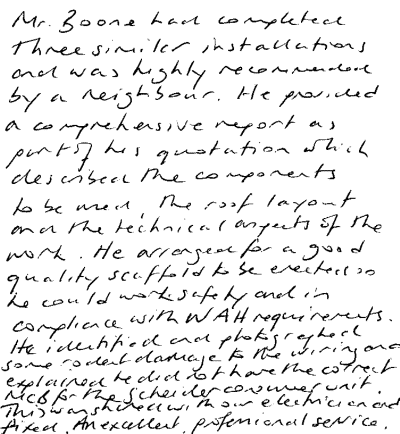 Mr. Boone had completed
three similar installations
and was highly recommended
by a neighbour. He provided
a comprehensive report as
part of his quotation which
described the components
to be used, the roof layout
and the technical aspects of the
work. He arranged for a good
quality scaffold to be erected so
he could work safely and in
compliance with WAH requirements.
He identified and photographed
some rodent damage to the wiring and
explained he did not have the correct
MCB for the Scheider consumer unit.
This was shared with our electrician and
fixed. An excellent, professional service.